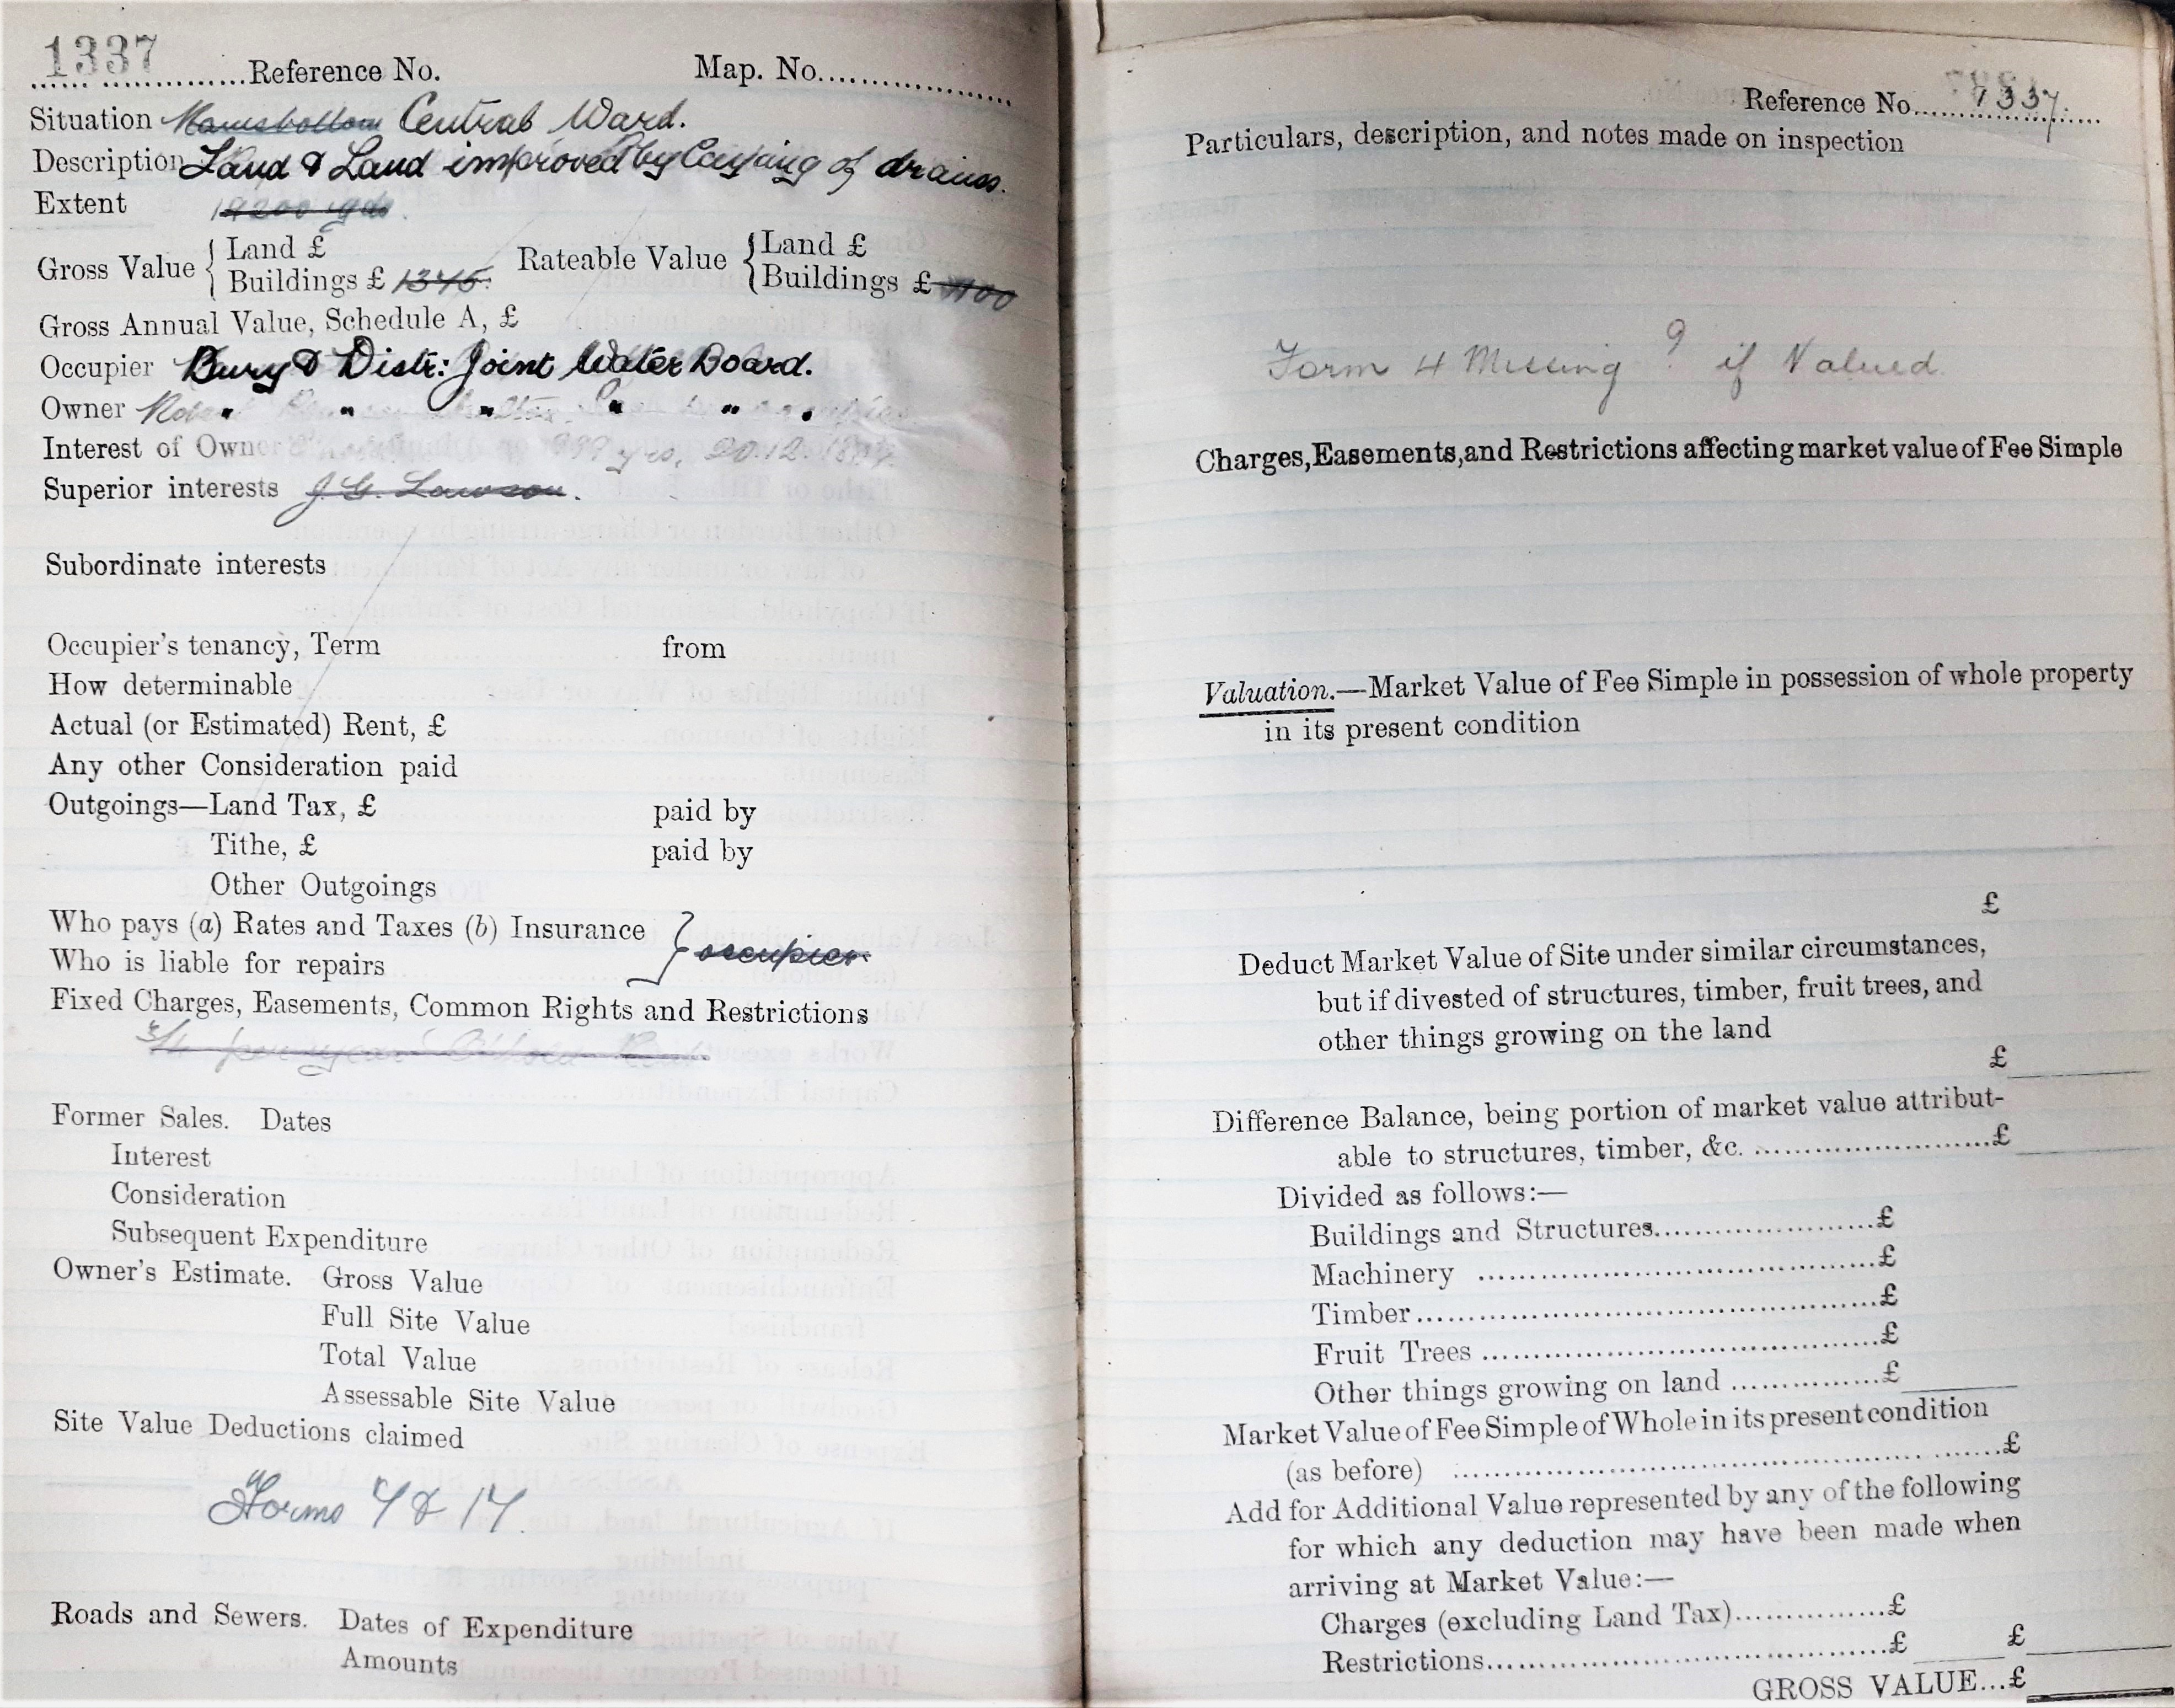 1337
Reference No. Map. No.
Situation Ramsbottom Central Ward.
Description Land & Land improved by laying of drains.
Extent yds
Gross Value { Land £ Rateable Value { Land £
Buildings £ 1345. Buildings £
Gross Annual Value, Schedule A, £
Occupier Bury & Distr: Joint Water Board.
Owner " " " " " "
Interest of Owner 999 yrs,
Superior interests J. G. Lawson.
Subordinate interests
Occupier's tenancy, Term from
How determinable
Actual (or Estimated) Rent, £
Any other Consideration paid
Outgoings—Land Tax, £ paid by
Tithe, £ paid by
Other Outgoings
Who pays (a) Rates and Taxes (b) Insurance } occupier.
Who is liable for repairs
Fixed Charges, Easements, Common Rights and Restrictions
per year Rent
Former Sales. Dates
Interest
Consideration
Subsequent Expenditure
Owner's Estimate. Gross Value
Full Site Value
Total Value
Assessable Site Value
Site Value Deductions claimed
Forms 4 & 14.
Roads and Sewers. Dates of Expenditure
Amounts
Reference No. 1337.
Particulars, description, and notes made on inspection
Form 4 Missing ? if Valued.
Charges, Easements, and Restrictions affecting market value of Fee Simple
Valuation.—Market Value of Fee Simple in possession of whole property
in its present condition
£
Deduct Market Value of Site under similar circumstances,
but if divested of structures, timber, fruit trees, and
other things growing on the land
£
Difference Balance, being portion of market value attribut-
able to structures, timber, &c. £
Divided as follows:—
Buildings and Structures £
Machinery £
Timber £
Fruit Trees £
Other things growing on land £
Market Value of Fee Simple of Whole in its present condition
(as before) £
Add for Additional Value represented by any of the following
for which any deduction may have been made when
arriving at Market Value:—
Charges (excluding Land Tax) £
Restrictions £ £
GROSS VALUE...£